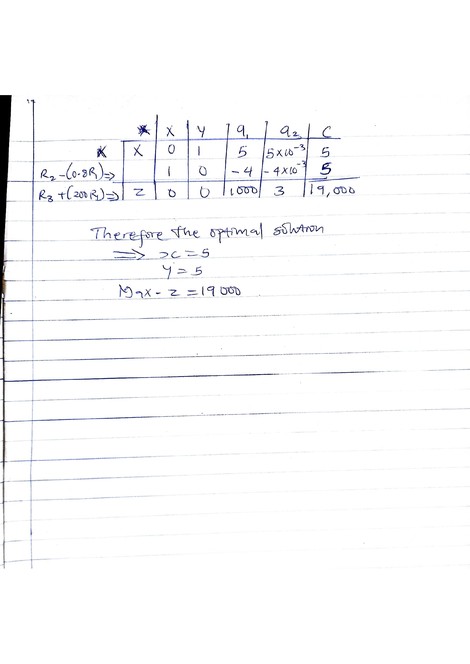 x y q₁ q₂ C
x 0 1 5 5×10⁻³ 5
R₂-(0.8R₁)⇒ 1 0 -4 -4×10⁻³ 5
R₃+(200R₁)⇒ z 0 0 1000 3 19,000
Therefore the optimal solution
⇒ x=5
y=5
Max-z=19000